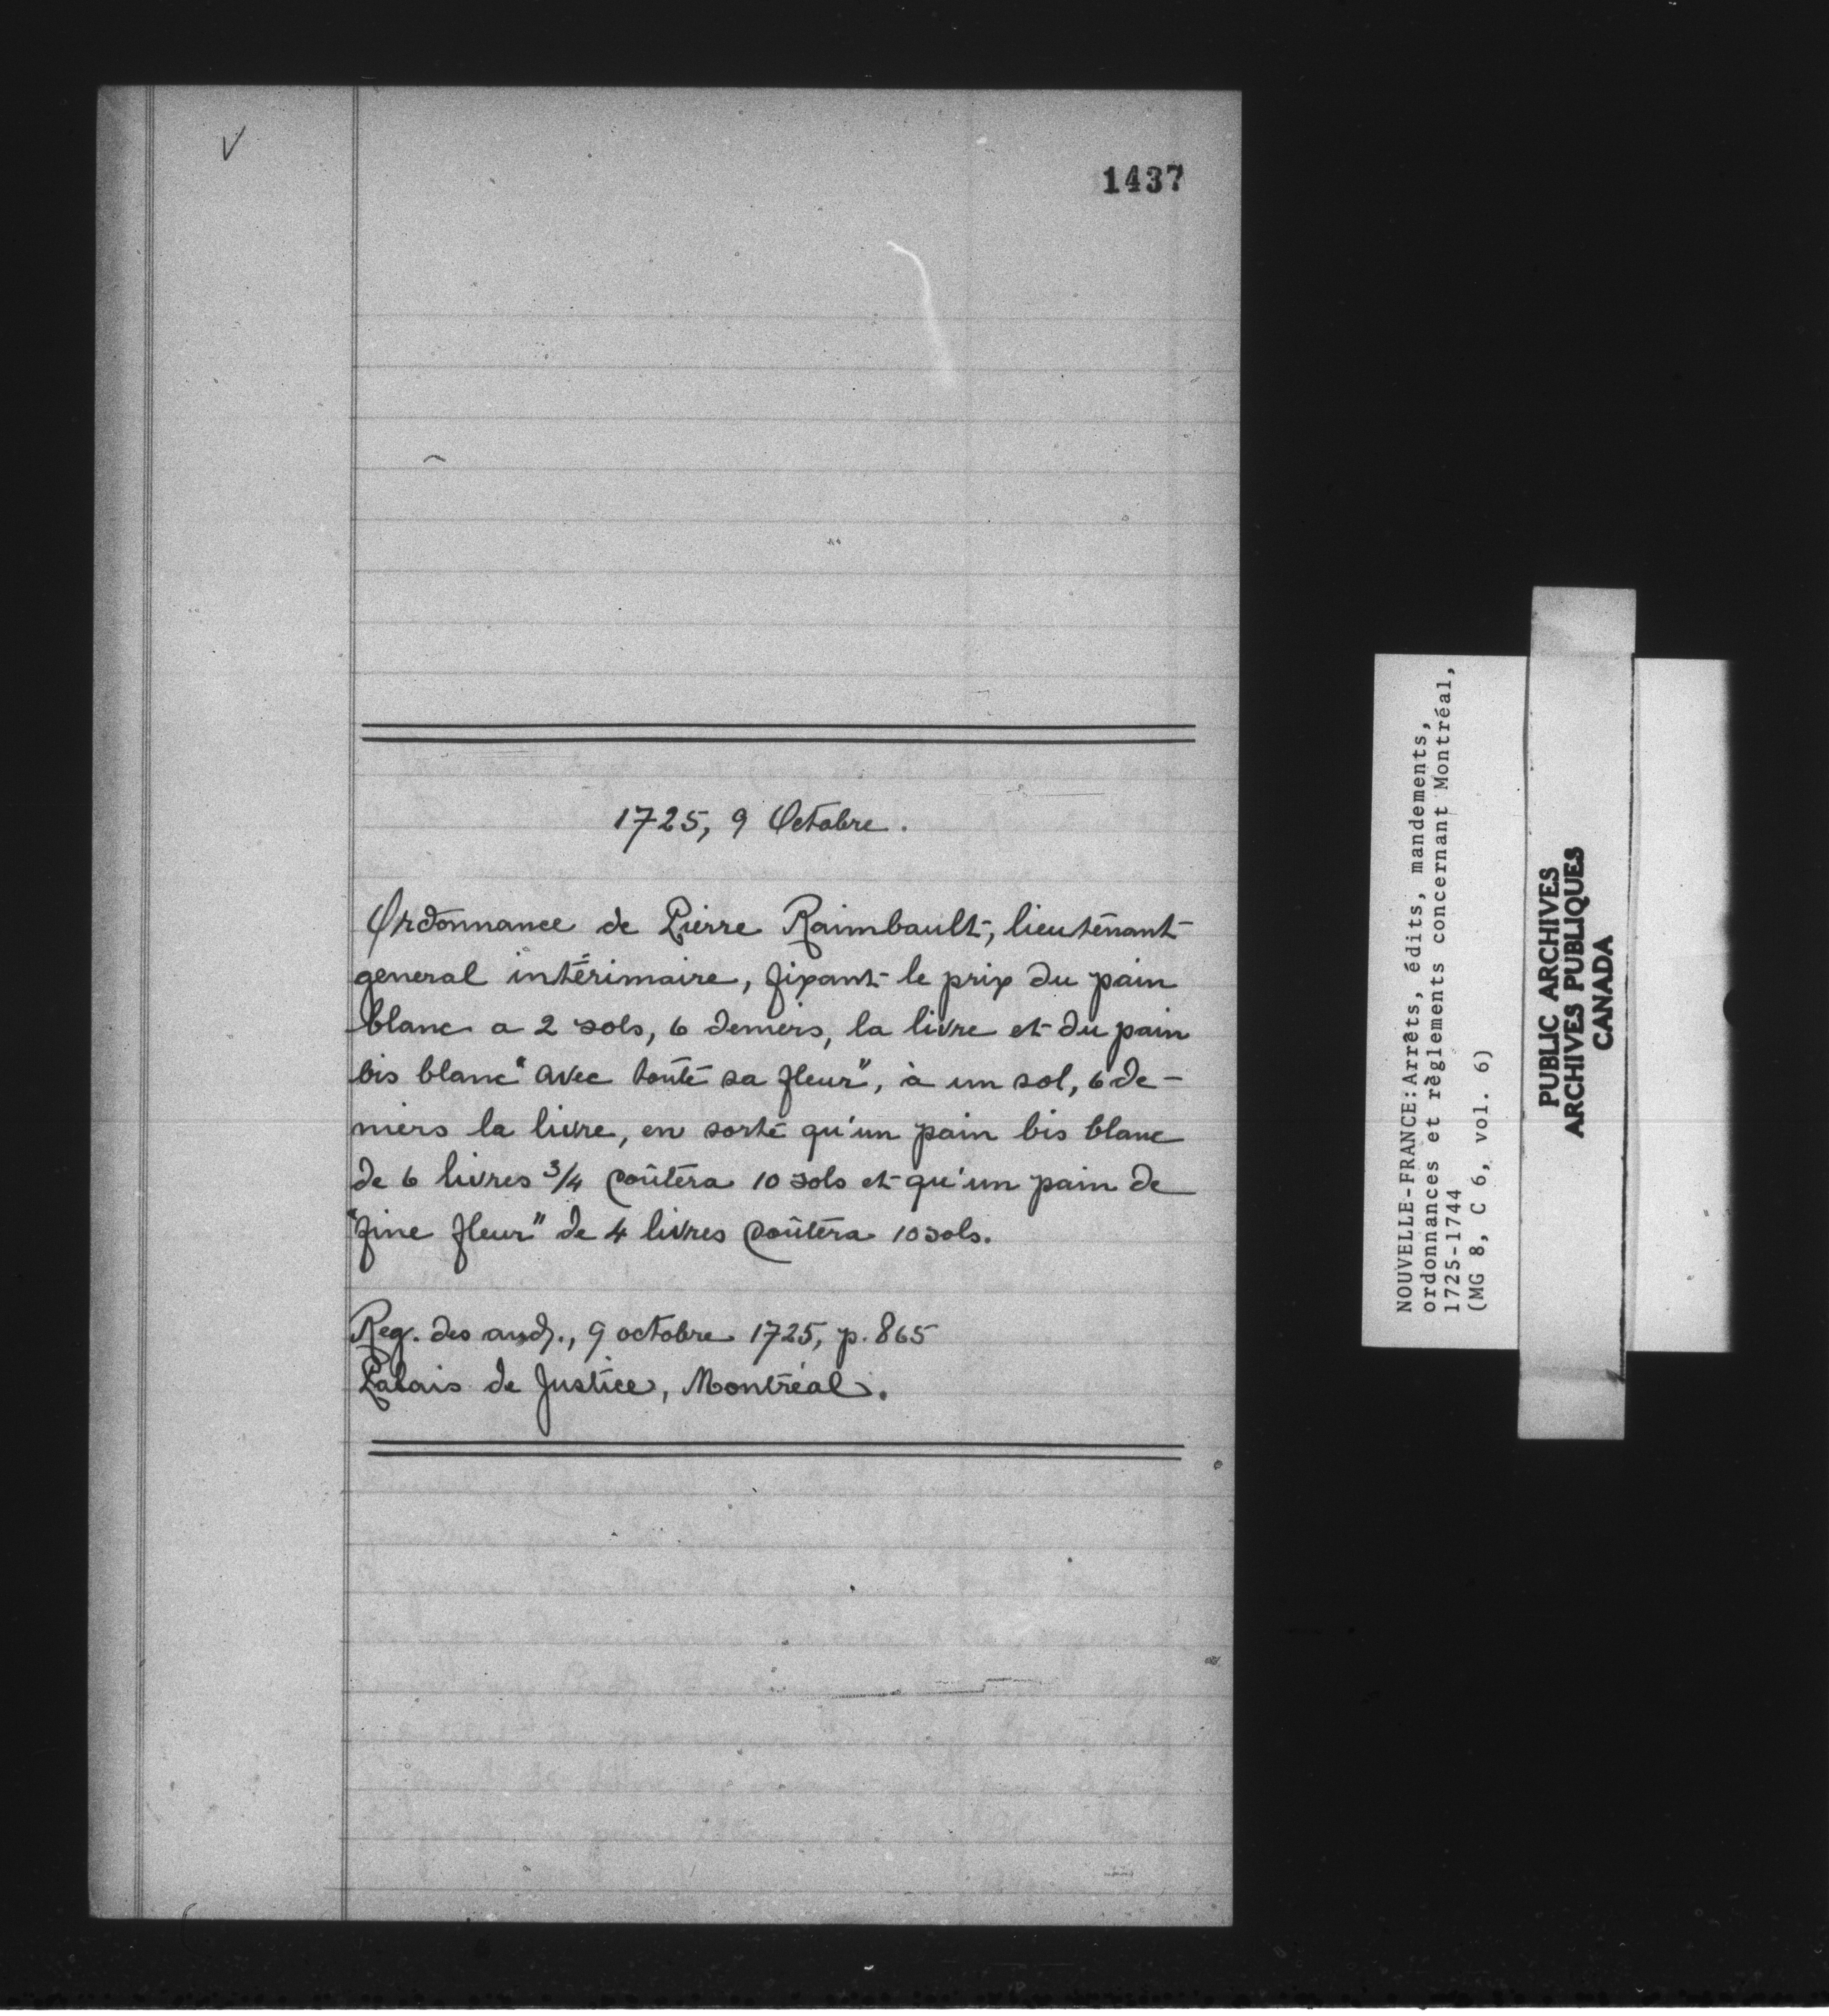 V
1437
1725, 9 Octobre.
Ordonnance de Pierre Raimbault, lieutenant
general intérimaire, fixant le prix du pain
blanc a 2 sols, 6 deniers, la livre et du pain
bis blanc "avec toute sa fleur", à un sol, 6 de-
niers la livre, en sorte qu'un pain bis blanc
de 6 livres 3/4 coûtera 10 sols et qu'un pain de
"fine fleur" de 4 livres coûtera 10 sols.
Reg. des aud., 9 octobre 1725, p. 865
Palais de Justice, Montréal.
NOUVELLE-FRANCE:Arrêts, édits, mandements,
ordonnances et règlements concernant Montréal,
1725-1744
(MG 8, C 6, vol. 6)
PUBLIC ARCHIVES
ARCHIVES PUBLIQUES
CANADA